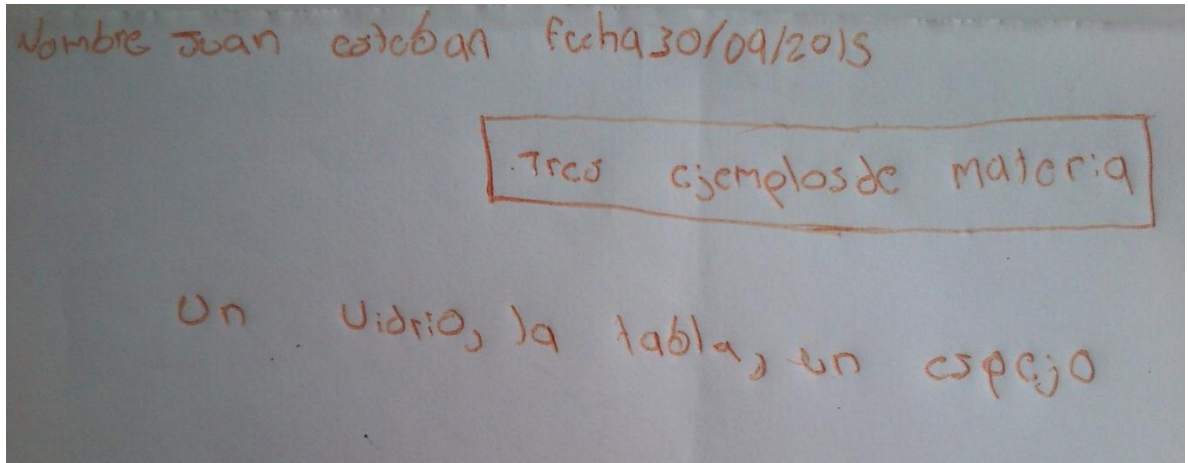 Nombre Juan esteban fecha 30/09/2015
.Tres ejemplos de materia
Un vidrio, la tabla, un espejo